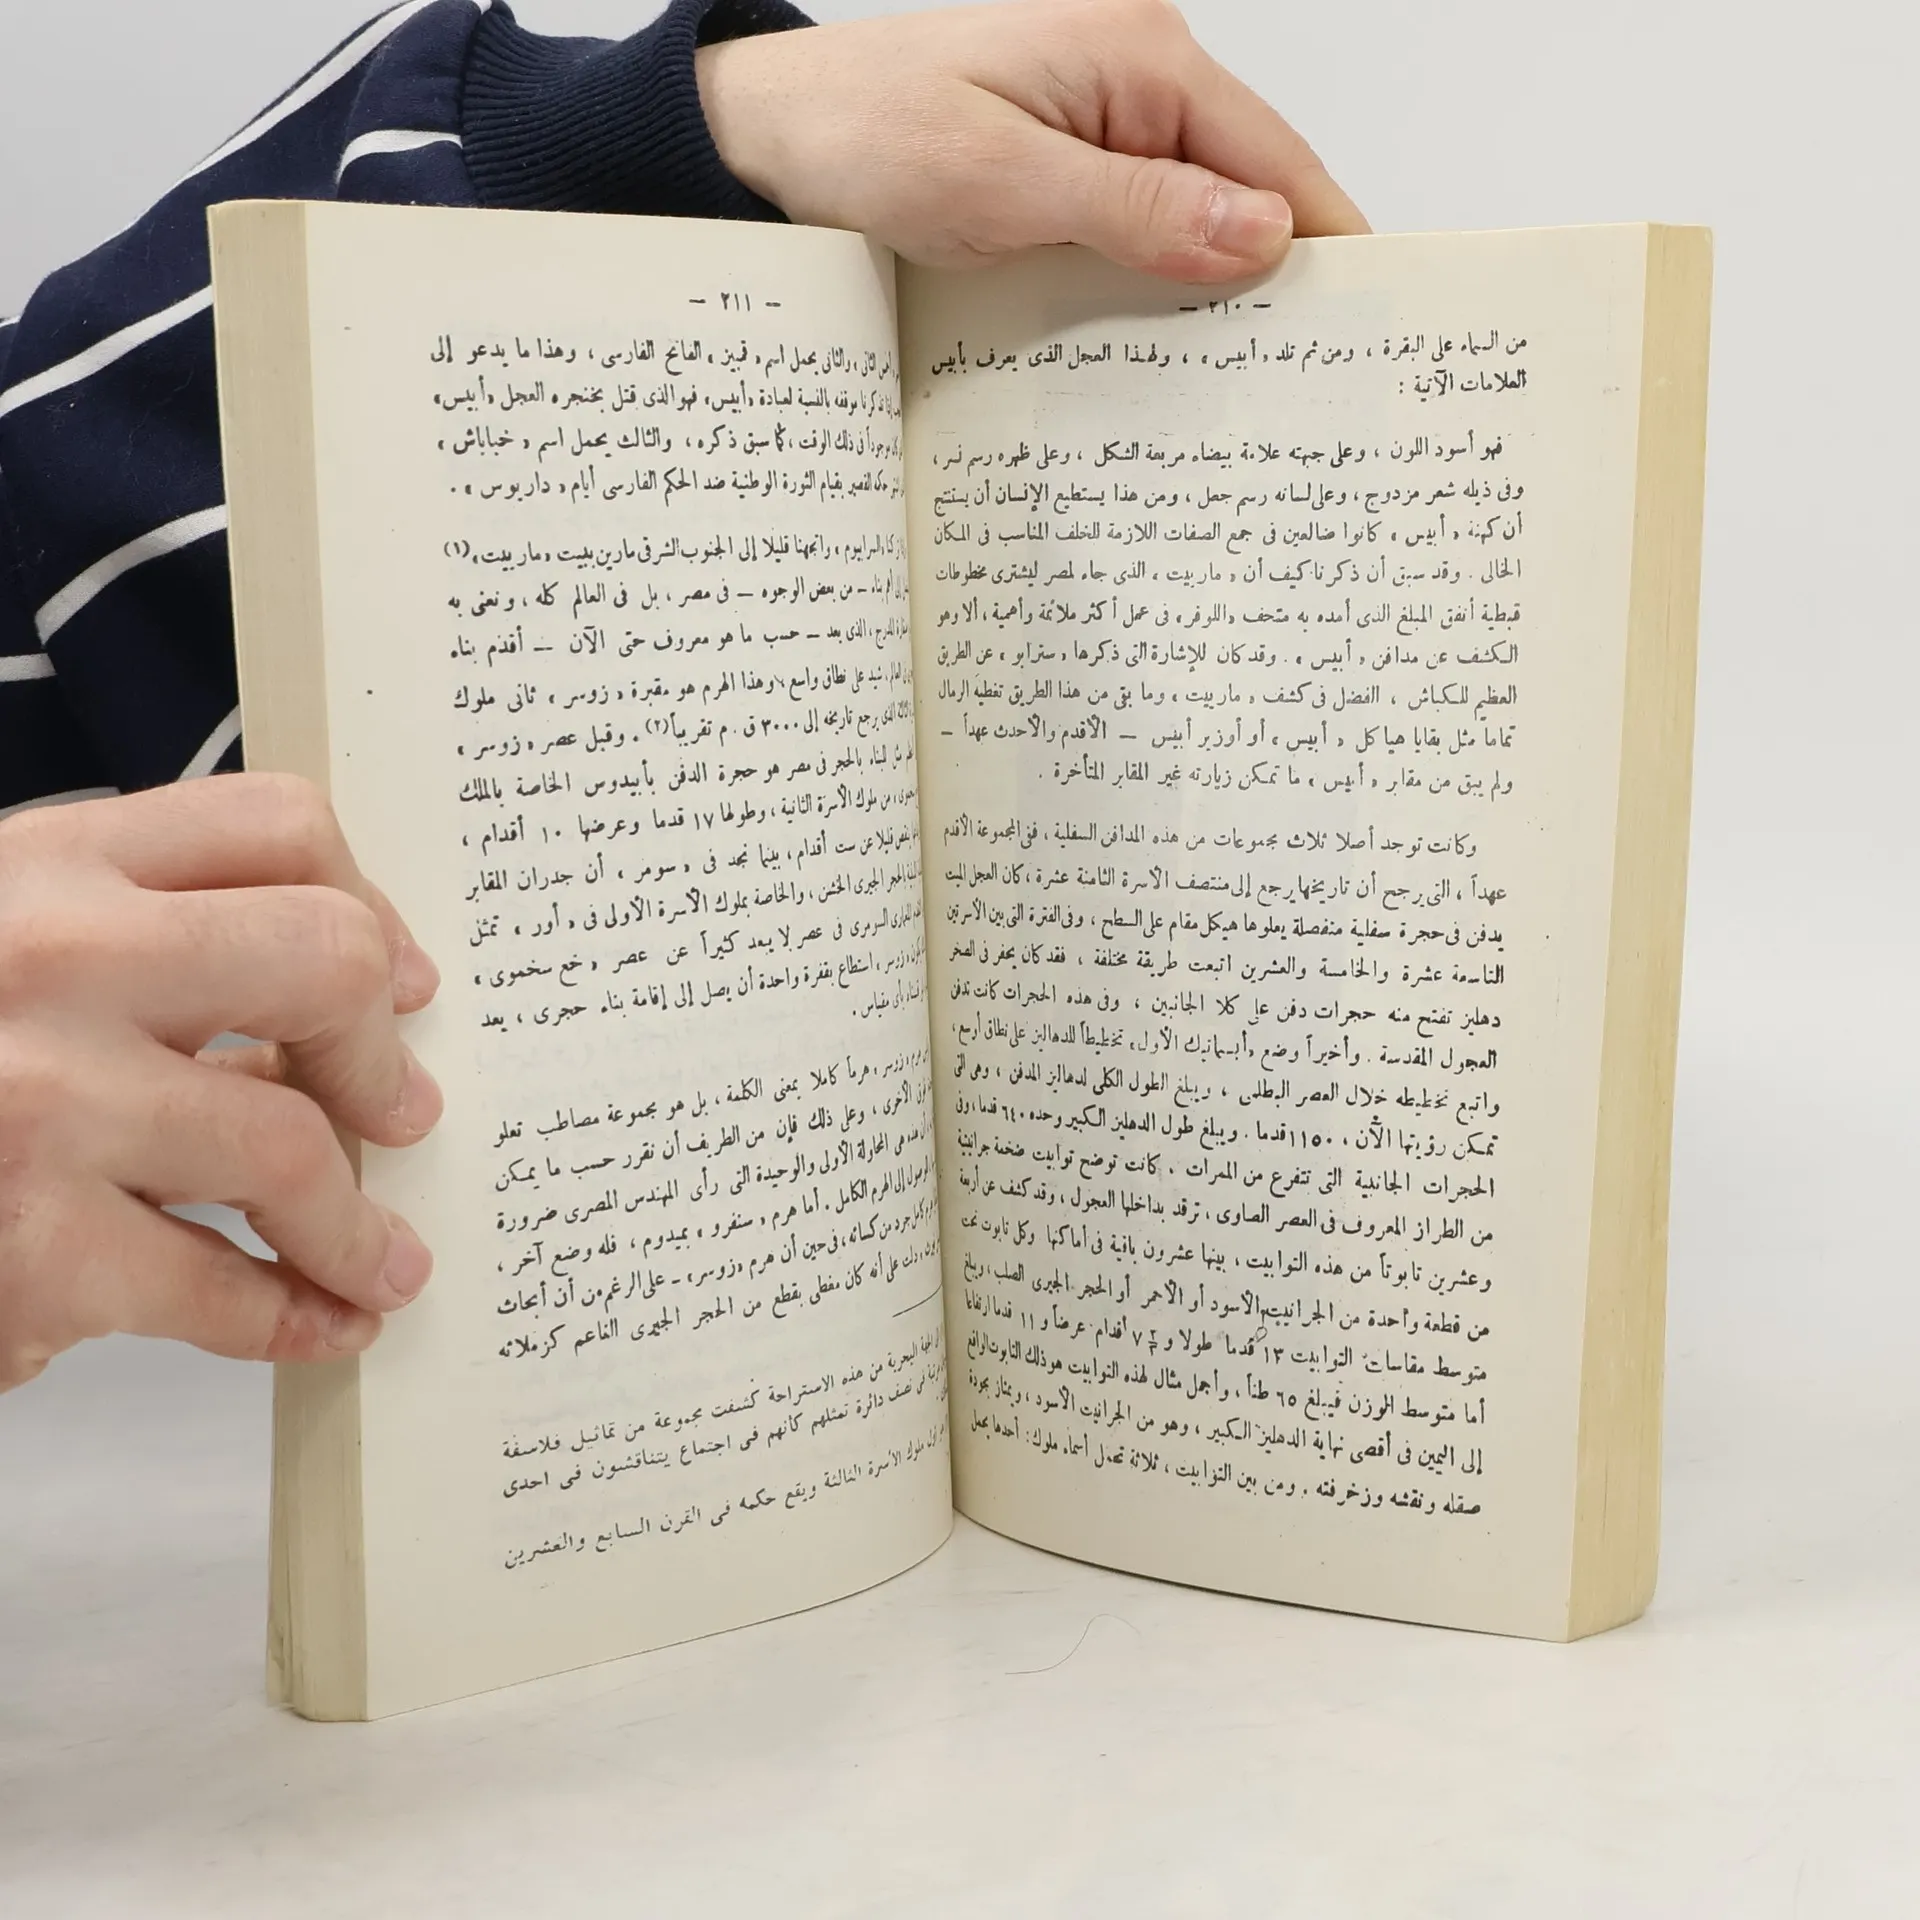 — ٢١٠ —
من السماء على البقرة ، ومن ثم تلد « أبيس » ، ولهذا العجل الذى يعرف بأبيس
العلامات الآتية :
فهو أسود اللون ، وعلى جبهته علامة بيضاء مربعة الشكل ، وعلى ظهره رسم نسر ،
وفى ذيله شعر مزدوج ، وعلى لسانه رسم جعل ، ومن هذا يستطيع الإنسان أن يستنتج
أن كهنة « أبيس » كانوا ضالعين فى جمع الصفات اللازمة للخلف المناسب فى المكان
الخالى . وقد سبق أن ذكرنا كيف أن « مارييت » الذى جاء لمصر ليشترى مخطوطات
قبطية أنفق المبلغ الذى أمده به متحف « اللوفر » فى عمل أكثر ملائمة وأهمية ، ألا وهو
الكشف عن مدافن « أبيس » . وقد كان للإشارة التى ذكرها « سترابو » عن الطريق
العظيم للكباش ، الفضل فى كشف « مارييت » وما بقى من هذا الطريق تغطيه الرمال
تماما مثل بقايا هياكل « أبيس » أو أوزير أبيس — الأقدم والأحدث عهداً —
ولم يبق من مقابر « أبيس » ما تمكن زيارته غير المقابر المتأخرة .
وكانت توجد أصلا ثلاث مجموعات من هذه المدافن السفلية ، ففى المجموعة الأقدم
عهداً ، التى يرجح أن تاريخها يرجع إلى منتصف الأسرة الثامنة عشرة ، كان العجل الميت
يدفن فى حجرة سفلية منفصلة يعلوها هيكل مقام على السطح ، وفى الفترة التى بين الأسرتين
التاسعة عشرة والخامسة والعشرين اتبعت طريقة مختلفة ، فقد كان يحفر فى الصخر
دهليز تفتح منه حجرات دفن على كلا الجانبين ، وفى هذه الحجرات كانت تدفن
العجول المقدسة . وأخيراً وضع « أبسماتيك الأول » تخطيطاً للدهاليز على نطاق أوسع ،
واتبع تخطيطه خلال العصر البطلمى ، ويبلغ الطول الكلى لدهاليز المدفن ، وهى التى
تمكن رؤيتها الآن ، ١١٥٠ قدما . ويبلغ طول الدهليز الكبير وحده ٦٤٠ قدما ، وفى
الحجرات الجانبية التى تتفرع من الممرات ، كانت توضح توابيت ضخمة جرانيتية
من الطراز المعروف فى العصر الصاوى ، ترقد بداخلها العجول ، وقد كشف عن أربعة
وعشرين تابوتاً من هذه التوابيت ، بينها عشرون باقية فى أماكنها وكل تابوت نحت
من قطعة وأحدة من الجرانيت الأسود أو الأحمر أو الحجر الجيرى الصلب ، ويبلغ
متوسط مقاسات التوابيت ١٣ قدما طولا و ٧ أقدام عرضاً و ١١ قدما ارتفاعا
أما متوسط الوزن فيبلغ ٦٥ طناً ، وأجمل مثال لهذه التوابيت هو ذلك التابوت الواقع
إلى اليمين فى أقصى نهاية الدهليز الكبير ، وهو من الجرانيت الأسود ، ويمتاز بجودة
صقله ونقشه وزخرفته . ومن بين التوابيت ، ثلاثة تحمل أسماء ملوك : أحدها يحمل
— ٢١١ —
الثانى ، والثانى يحمل اسم « قمبيز » الفاتح الفارسى ، وهذا ما يدعو إلى
تذكرنا موقفه بالنسبة لعبادة « أبيس » فهو الذى قتل بخنجره العجل « أبيس »
موجوداً فى ذلك الوقت ، كما سبق ذكره ، والثالث يحمل اسم « خباباش »
حكمه القصير بقيام الثورة الوطنية ضد الحكم الفارسى أيام « داريوس » .
« السرابيوم » واتجهنا قليلا إلى الجنوب الشرقى مارين ببيت « مارييت » (١)
أهم بناء — من بعض الوجوه — فى مصر ، بل فى العالم كله ، ونعنى به
المدرج ، الذى يعد — حسب ما هو معروف حتى الآن — أقدم بناء
العالم ، شيد على نطاق واسع ، وهذا الهرم هو مقبرة « زوسر » ثانى ملوك
الذى يرجع تاريخه إلى ٣٠٠٠ ق . م تقريباً (٢) . وقبل عصر « زوسر »
مثل للبناء بالحجر فى مصر هو حجرة الدفن بأبيدوس الخاصة بالملك
من ملوك الأسرة الثانية ، وطولها ١٧ قدما وعرضها ١٠ أقدام ،
ينقص قليلا عن ست أقدام ، بينما نجد فى « سومر » أن جدران المقابر
الحجر الجيرى الخشن ، والخاصة بملوك الأسرة الأولى فى « أور » تمثل
السومرى فى عصر لا يبعد كثيراً عن عصر « خع سخموى »
« زوسر » استطاع بقفزة واحدة أن يصل إلى إقامة بناء حجرى ، يعد
بأى مقياس .
هرم « زوسر » هرماً كاملا بمعنى الكلمة ، بل هو مجموعة مصاطب تعلو
الأخرى ، وعلى ذلك فإن من الطريف أن نقرر حسب ما يمكن
أن هذه هى المحاولة الأولى والوحيدة التى رأى المهندس المصرى ضرورة
الوصول إلى الهرم الكامل . أما هرم « سنفرو » بميدوم ، فله وضع آخر ،
هرم كامل جرد من كسائه ، فى حين أن هرم « زوسر » — على الرغم من أن أبحاث
دلت على أنه كان مغطى بقطع من الحجر الجيرى الناعم كزملائه
الجهة البحرية من هذه الاستراحة كشفت مجموعة من تماثيل فلاسفة
فى نصف دائرة تمثلهم كأنهم فى اجتماع يتناقشون فى احدى
ملوك الأسرة الثالثة ويقع حكمه فى القرن السابع والعشرين